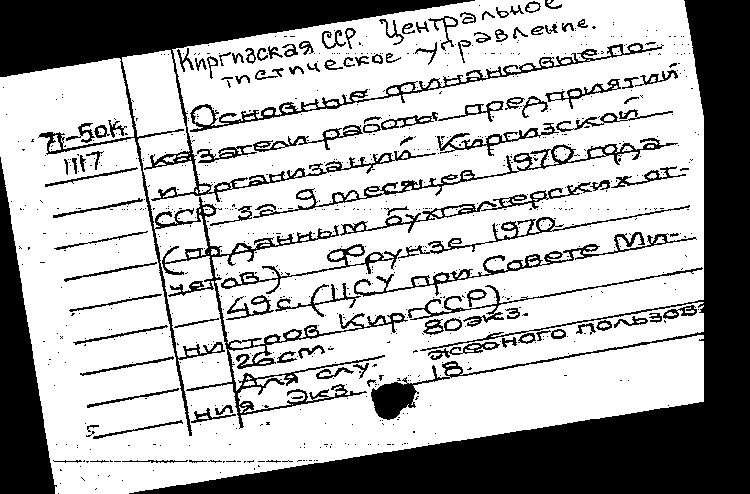 Киргизская ССР. Центральное
тистическое управление.
Основные финансовые по-
71-50К
казатели работы предприятий
1117
и организаций Киргизской
ССР за 9 месяцев 1970 года
(по данным бухгалтерских от-
четов). Фрунзе, 1970
49с. (ЦСУ при Совете Ми-
нистров КиргССР)
26см. 80экз.
Для слу- жебного пользова
ния. Экз. 18.
5